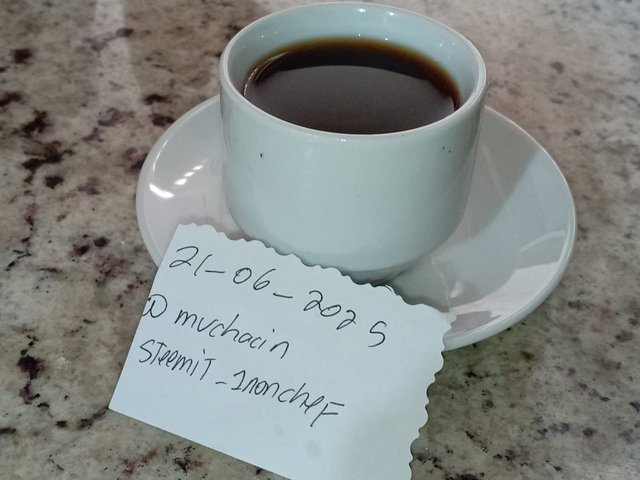 21-06-2025
@ muchacin
STEEMIT-IRONCHEF